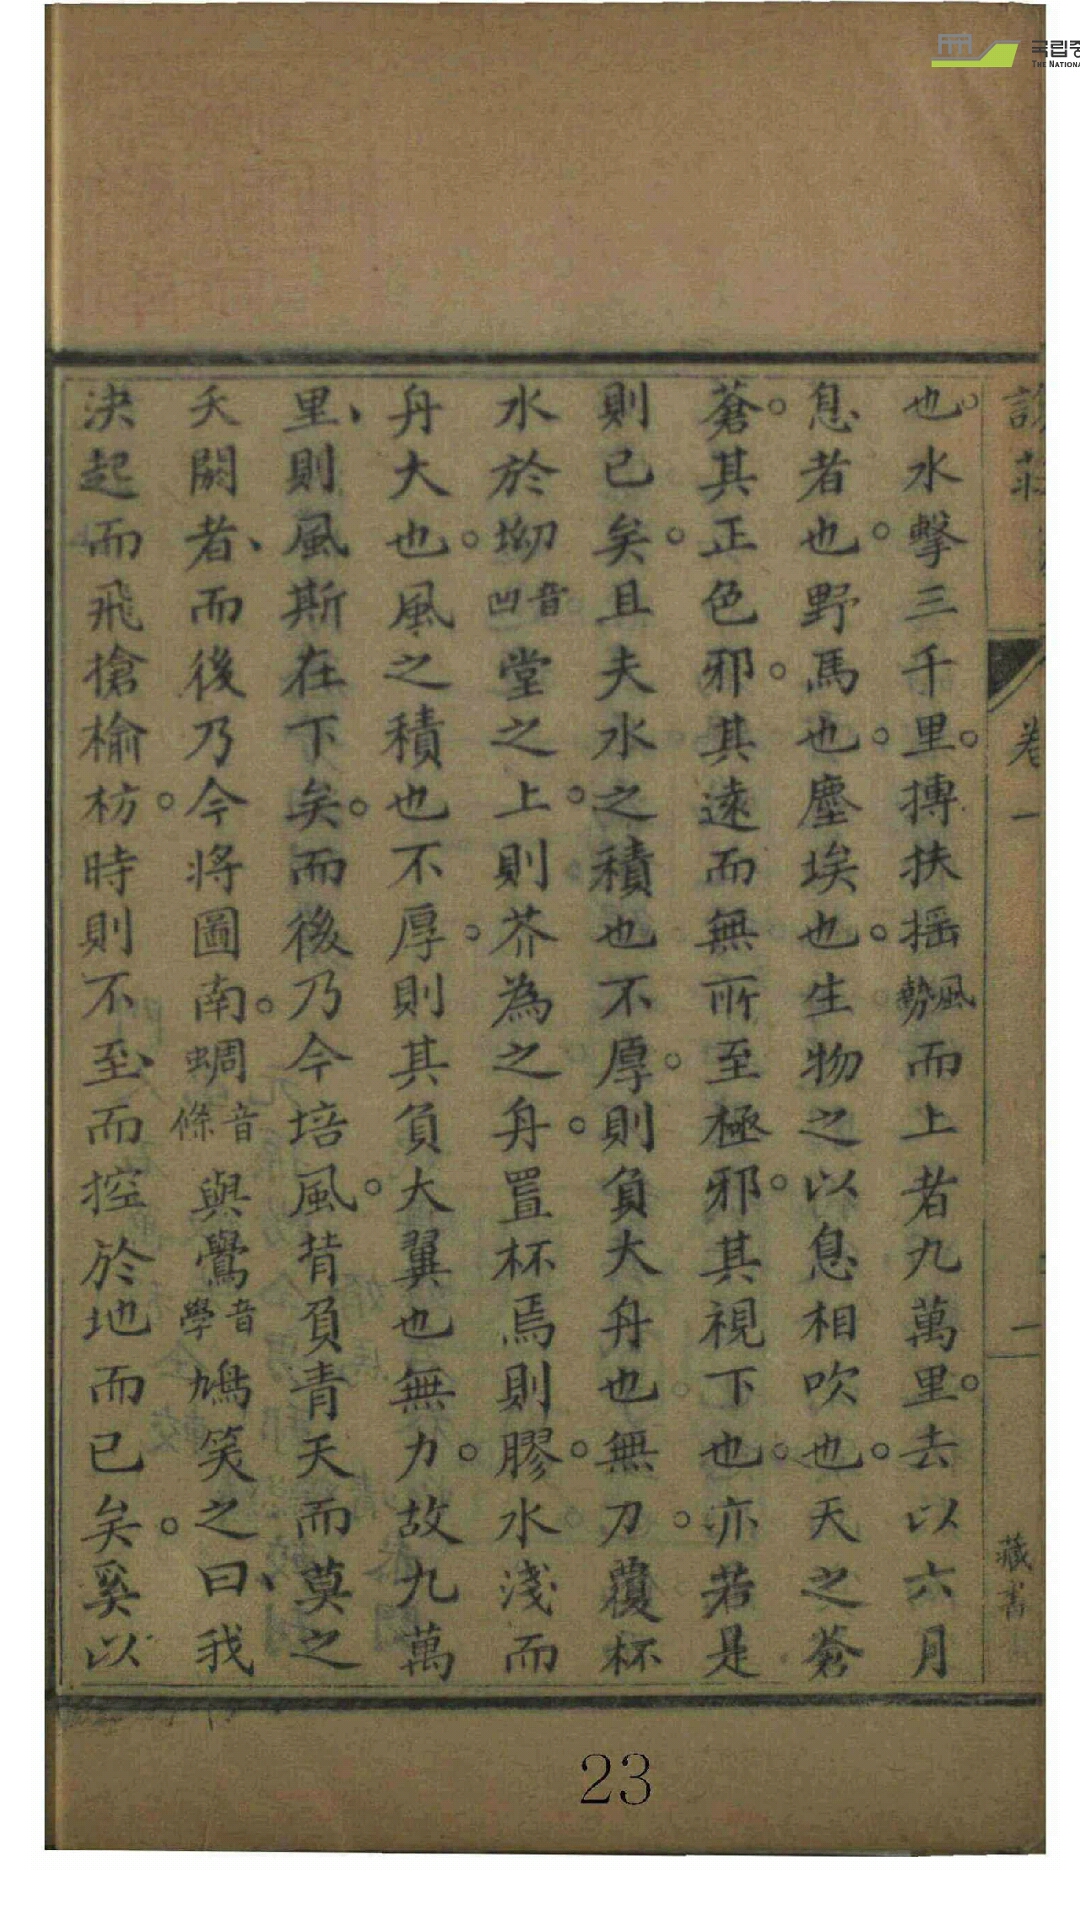 也。水擊三千里。搏扶摇風勢而上者九萬里。去以六月
息、者也。野馬也。塵埃也。生物之以息相吹也。天之蒼
蒼。其正色邪。其遠而無所至極邪。其視下也。亦若是
則已矣。且夫水之積也不厚。則負大舟也無刀。覆杯
水於坳音凹堂之上。則芥為之舟。置杯焉則膠。水淺而
舟大也。風之積也不厚。則其負大翼也無力。故九萬
里、則風斯在下矣。而後乃今培風。背負青天而莫之
夭閼者、而後乃今將圖南。蜩音條與鷽音學鳩笑之曰、我
決起而飛搶榆枋。時則不至、而控於地而已矣。奚以
卷一
二
藏書
23